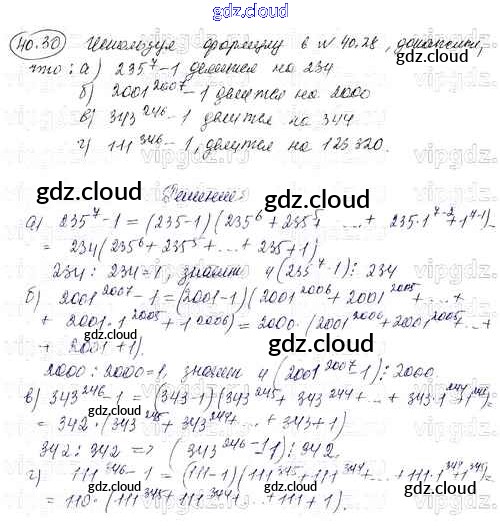 gdz.cloud
40.30 Используя формулу в № 40.28, докажите,
gdz.cloud
что: а) 235⁷-1 делится на 234
б) 2001²⁰⁰⁷-1 делится на 2000
gdz.cloud
в) 343²⁴⁶-1 делится на 344
г) 111³⁴⁶-1, делится на 123320.
gdz.cloud
Решение
gdz.cloud
а) 235⁷-1 = (235-1)(235⁶+235⁵+ ... + 235·1⁷⁻²+1⁷⁻¹)=
= 234(235⁶+235⁵+...+235+1)
234 : 234=1, значит и (235⁷-1) ⋮ 234
б) 2001²⁰⁰⁷-1=(2001-1)(2001²⁰⁰⁶+2001²⁰⁰⁵+...+
+ 2001·1²⁰⁰⁵+1²⁰⁰⁶)=2000·(2001²⁰⁰⁶+2001²⁰⁰⁵+...+
+ 2001+1).
gdz.cloud
2000 : 2000=1, значит и (2001²⁰⁰⁷-1) ⋮ 2000.
в) 343²⁴⁶-1 = (343-1)(343²⁴⁵+343²⁴⁴+...+343·1²⁴⁴+1²⁴⁵)=
= 342·(343²⁴⁵+343²⁴⁴+...+343+1)
gdz.cloud
342 ⋮ 342 => (343²⁴⁶-1) ⋮ 342.
г) 111³⁴⁶-1 = (111-1)(111³⁴⁵+111³⁴⁴+...+111·1³⁴⁴+1³⁴⁵)=
gdz.cloud
= 110·(111³⁴⁵+111³⁴⁴+...+111+1).
gdz.cloud